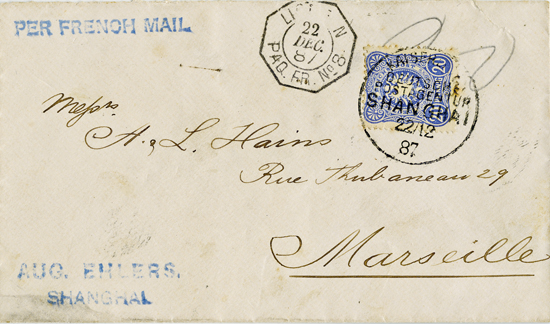 PER FRENCH MAIL
LIGNE N
22
DEC.
87
PAQ. FR. No 8
20
KAISERL.
DEUTSCHE
POSTAGENTUR
SHANGHAI
22/12
87.
Messrs
A. & L. Hains
Rue Thubaneau 29
Marseille
AUG. EHLERS.
SHANGHAI.